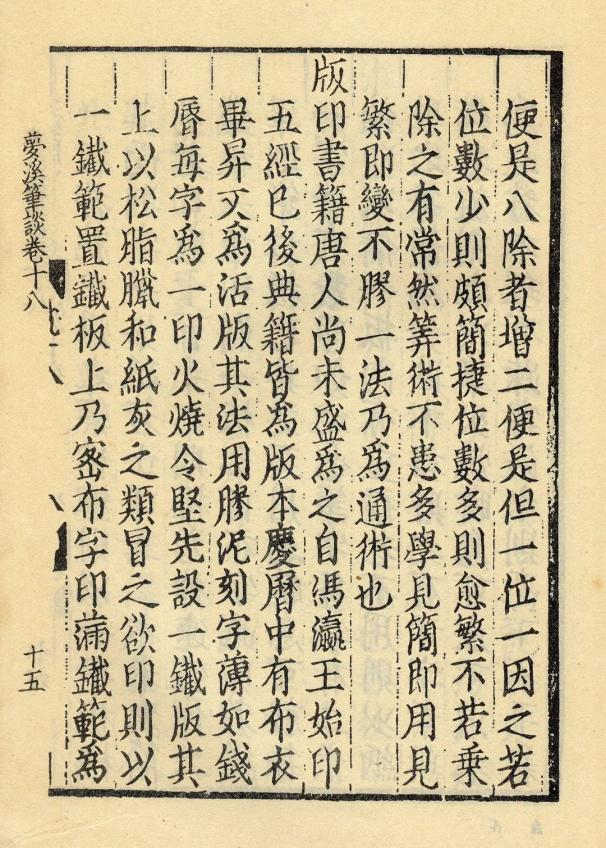 便是八除者增二便是但一位一因之若
位數少則頗簡捷位數多則愈繁不若乗
除之有常然筭術不患多學見簡即用見
繁即變不膠一法乃爲通術也
版印書籍唐人尚未盛爲之自馮瀛王始印
五經已後典籍皆爲版本慶曆中有布衣
畢昇又爲活版其法用膠泥刻字薄如錢
脣每字爲一印火燒令堅先設一鐵版其
上以松脂臘和紙灰之類冒之欲印則以
一鐵範置鐵板上乃宻布字印滿鐵範爲
夢溪筆談卷十八
十五